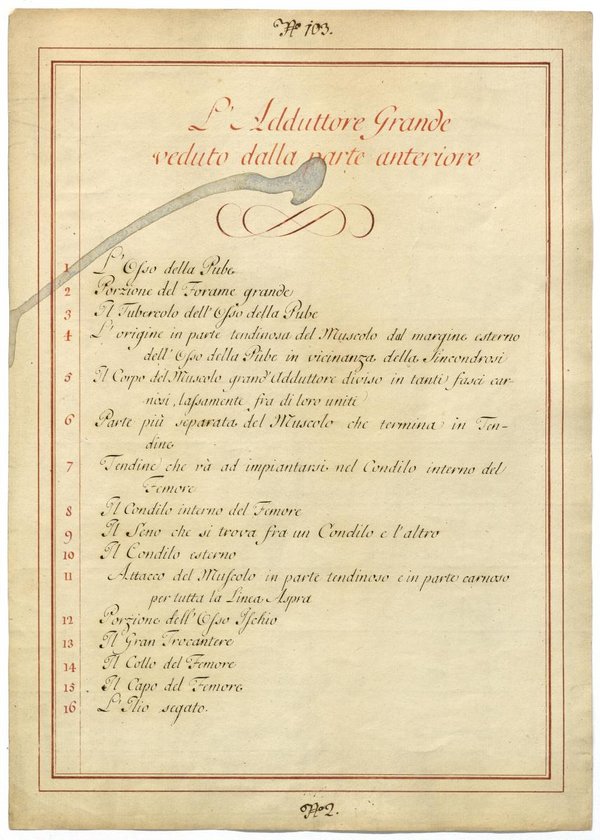 Nº 103.
L'Adduttore Grande
veduto dalla parte anteriore
1 L'Osso della Pube
2 Porzione del Forame grande
3 Il Tubercolo dell'Osso della Pube
4 L'origine in parte tendinosa del Muscolo dal margine esterno
dell'Osso della Pube in vicinanza della Sincondrosi
5 Il Corpo del Muscolo grand'Adduttore diviso in tanti fasci car-
nosi, lassamente fra di loro uniti
6 Parte più separata del Muscolo che termina in Ten-
dine
7 Tendine che và ad impiantarsi nel Condilo interno del
Femore
8 Il Condilo interno del Femore
9 Il Seno che si trova fra un Condilo e l'altro
10 Il Condilo esterno
11 Attacco del Muscolo in parte tendinoso e in parte carnoso
per tutta la Linea Aspra
12 Porzione dell'Osso Ischio
13 Il Gran Trocantere
14 Il Collo del Femore
15 Il Capo del Femore
16 L'Ilio segato.
Nº 2.